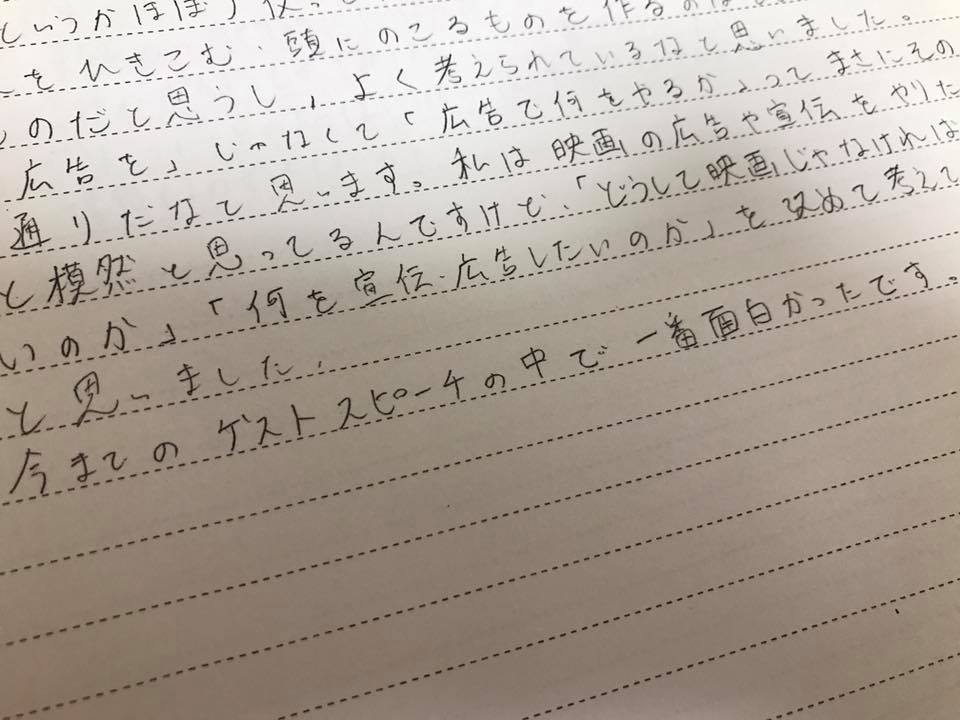 というかほぼ
をひきこむ、頭にのこるものを作るのは
のだと思うし、よく考えられているなと思いました。
広告を」じゃなくて「広告で何をやるか」ってまさにその
通りだなと思います。私は映画の広告や宣伝をやりた
と模然と思ってるんですけど、「どうして映画じゃなければ
いのか」「何を宣伝・広告したいのか」を改めて考えて
と思いました。
今までのゲストスピーチの中で一番面白かったです。